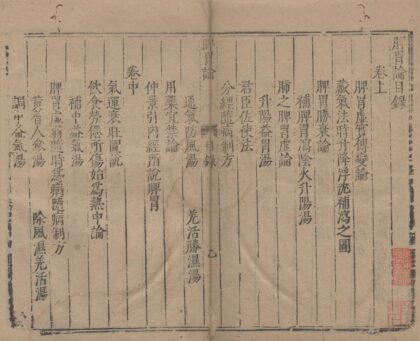 脾胃論目録
卷上
脾胃虛實傳變論
藏氣法時升降浮沉補瀉之圖
脾胃勝衰論
補脾胃瀉陰火升陽湯
肺之脾胃虛論
升陽益胃湯
君臣佐使法
分經隨病制方
脾胃論
目録
通氣防風湯
羌活勝濕湯
用藥宜禁論
仲景引内經所說脾胃
卷中
氣運衰旺圖說
飲食勞倦所傷始為熱中論
補中益氣湯
脾胃虛弱隨時為病隨病制方
黄芪人參湯
除風濕羌活湯
調中益氣湯